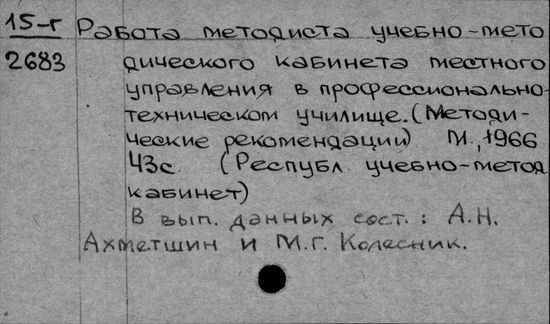 15-г Работа методиста учебно-мето
2683 дического кабинета местного
управления в профессионально-
техническом училище. (Методи-
ческие рекомендации) М., 1966
43с. (Республ. учебно-метод.
кабинет)
В вып. данных сост.: А.Н.
Ахметшин и М.Г. Колесник.